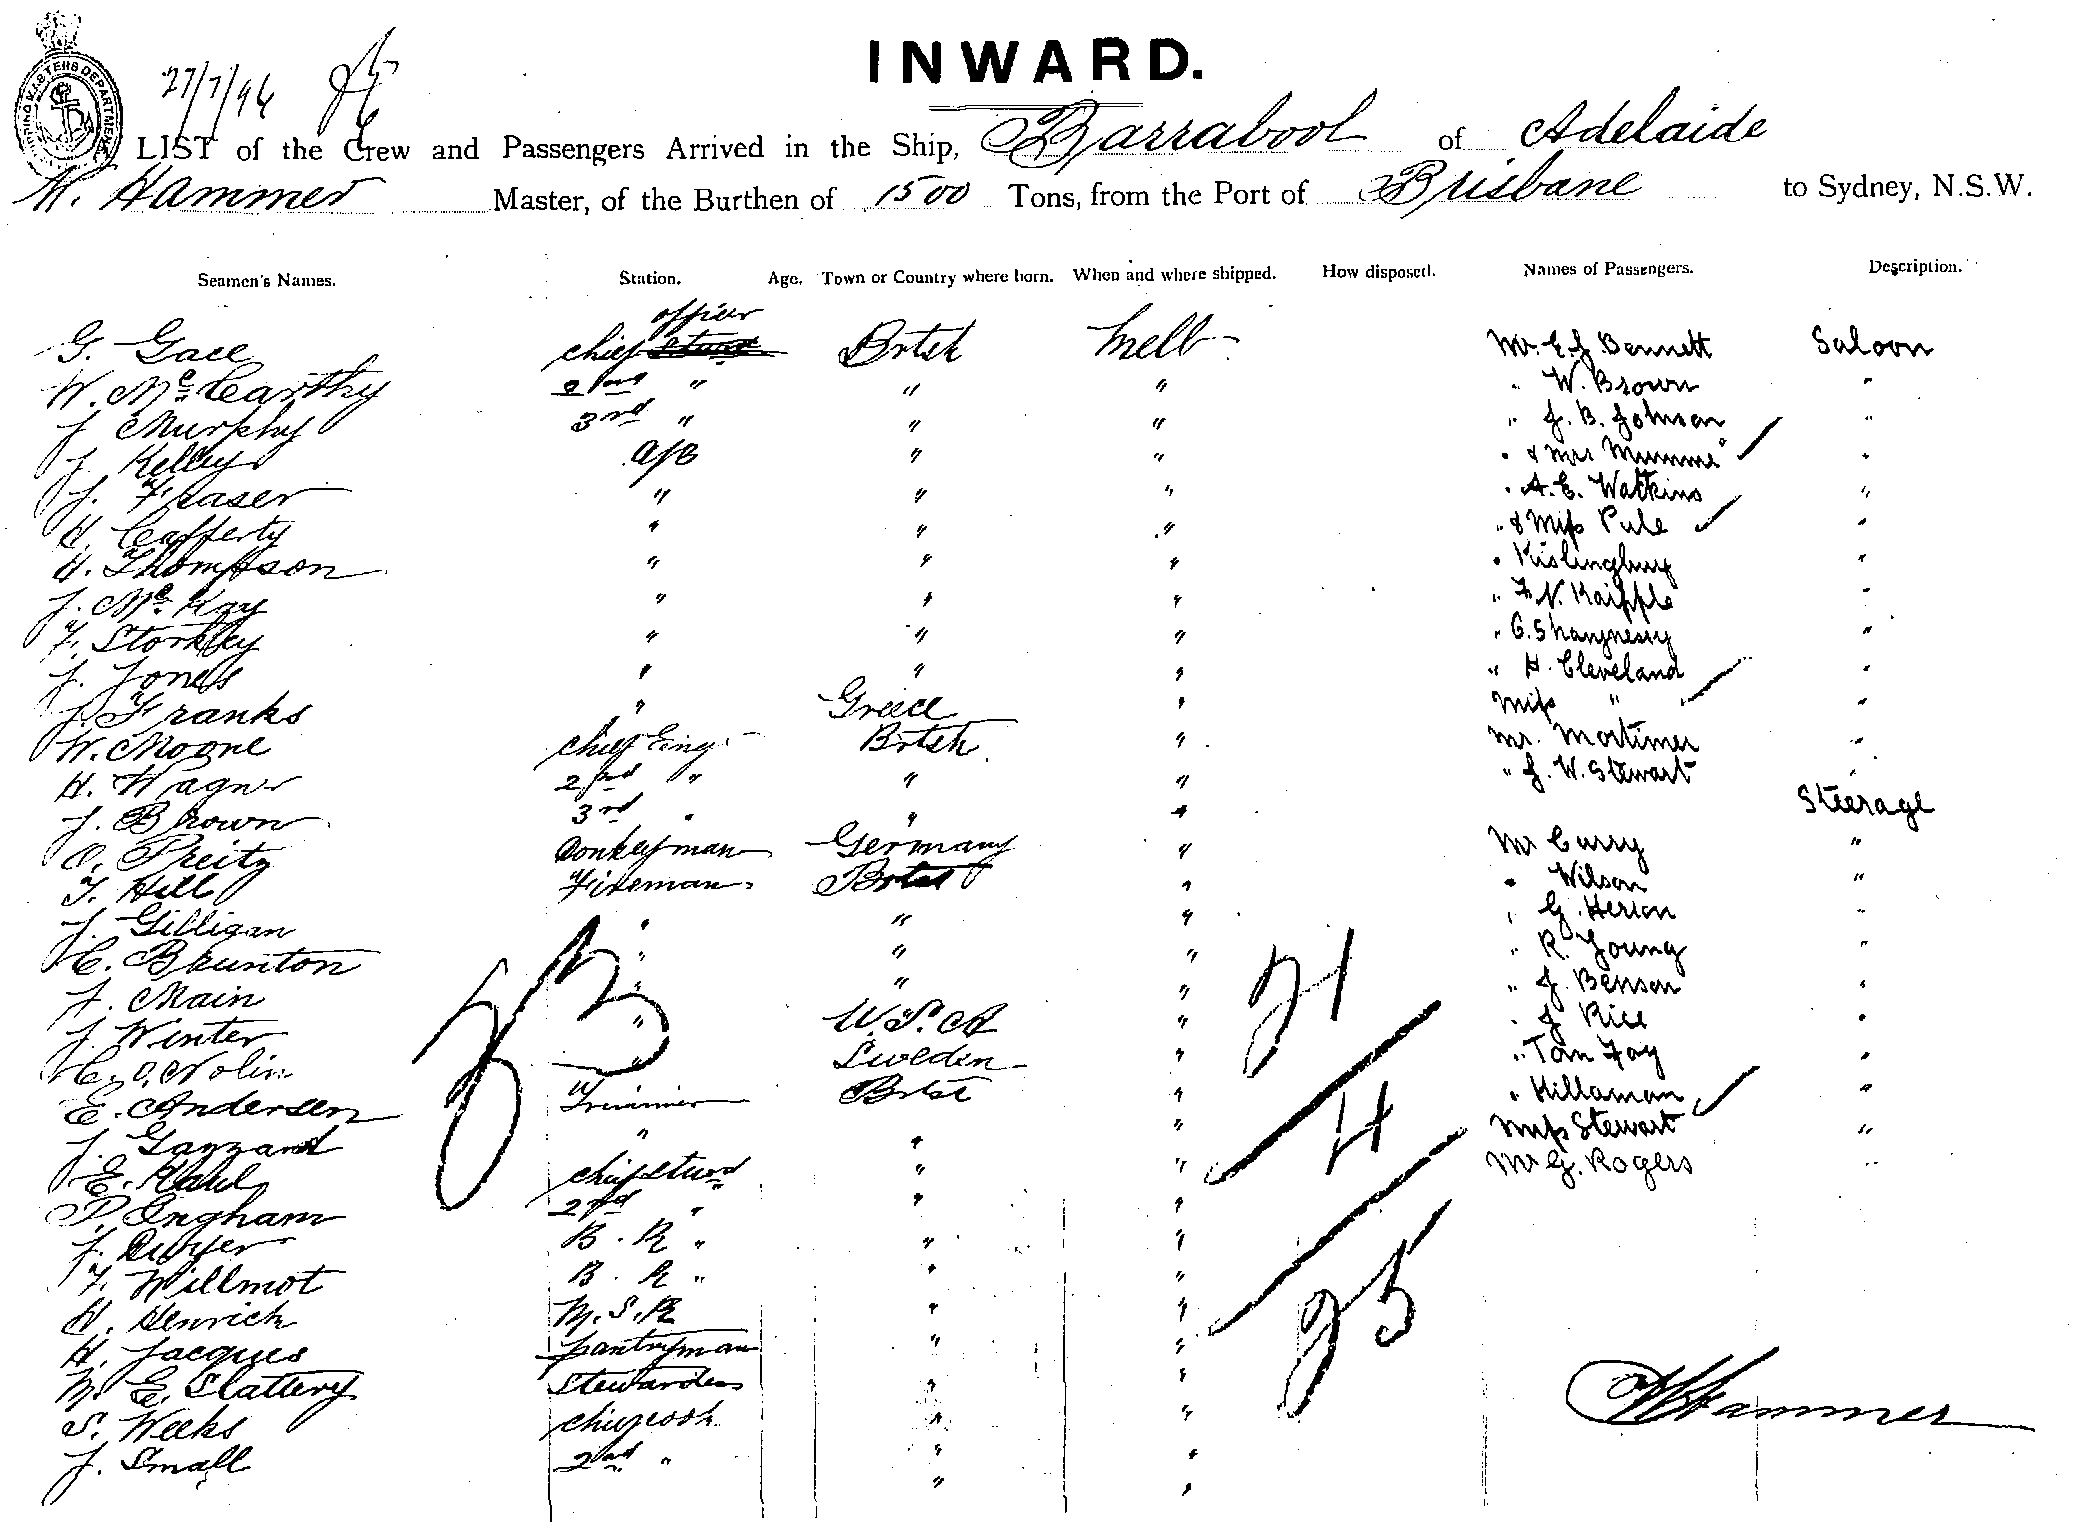 INWARD.
27/7/96
LIST of the Crew and Passengers Arrived in the Ship, Barrabool of Adelaide
W. Hammer Master, of the Burthen of 1500 Tons, from the Port of Brisbane to Sydney, N.S.W.
Seamen's Names. Station. Age. Town or Country where born. When and where shipped. How disposed. Names of Passengers. Description.
officer
G. Gace chief Brtsh Melb Mr. E. J. Bennett Saloon
W. McCarthy 2nd " " " " W. Brown "
J. Murphy 3rd " " " " J. B. Johnson "
J. Kelley A/B " " " & Mrs Mumme "
J. Fraser " " " " A. E. Watkins "
H. Cafferty " " " " & Miss Pule "
H. Thompson " " " " Kislingbury "
J. McKay " " " " F. N. Kaipple "
F. Storkley " " " " G. Shaynessy "
J. Jones " " " " H. Cleveland "
J. Franks " Greece " Miss " "
W. Moone chief Eng. Brtsh " Mr. Mortimer "
H. Wagner 2nd " " " " J. W. Stewart "
J. Brown 3rd " " " Steerage
O. Preitz Donkeyman Germany " Mr Curry "
T. Hill Fireman Brtsh " " Wilson "
J. Gilligan " " " " G. Herion "
C. Brunton " " " " R. Young "
J. Main " " " " J. Benson "
J. Winter " U.S.A " " J. Rice "
C. O. Nolin " Sweden " " Tom Fay "
E. Andersen Trimmer Brtsh " " Killaman "
J. Gazzard " " " Miss Stewart "
E. Kahl chief stwd " " Mr G. Rogers "
P. Ingham 2nd " " "
J. Dwyer B. R " " "
F. Willmot B. R " " "
H. Henrich M. S. R " "
H. Jacques pantryman " "
M. E. Slattery Stewardess " "
S. Weeks chief cook " "
J. Small 2nd " " "
33
21
4
25
W Hammer